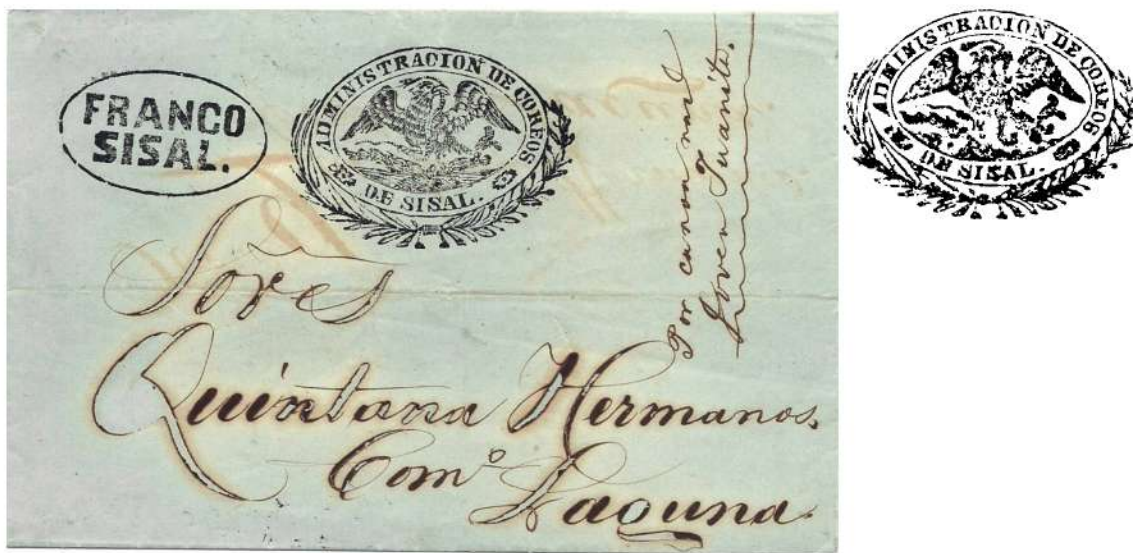 FRANCO
SISAL.
ADMINISTRACION DE CORREOS.
DE SISAL.
Por canoa nacl
Joven Juanito.
Sores
Quintana Hermanos.
Como
Laguna.
ADMINISTRACION DE CORREOS
DE SISAL.